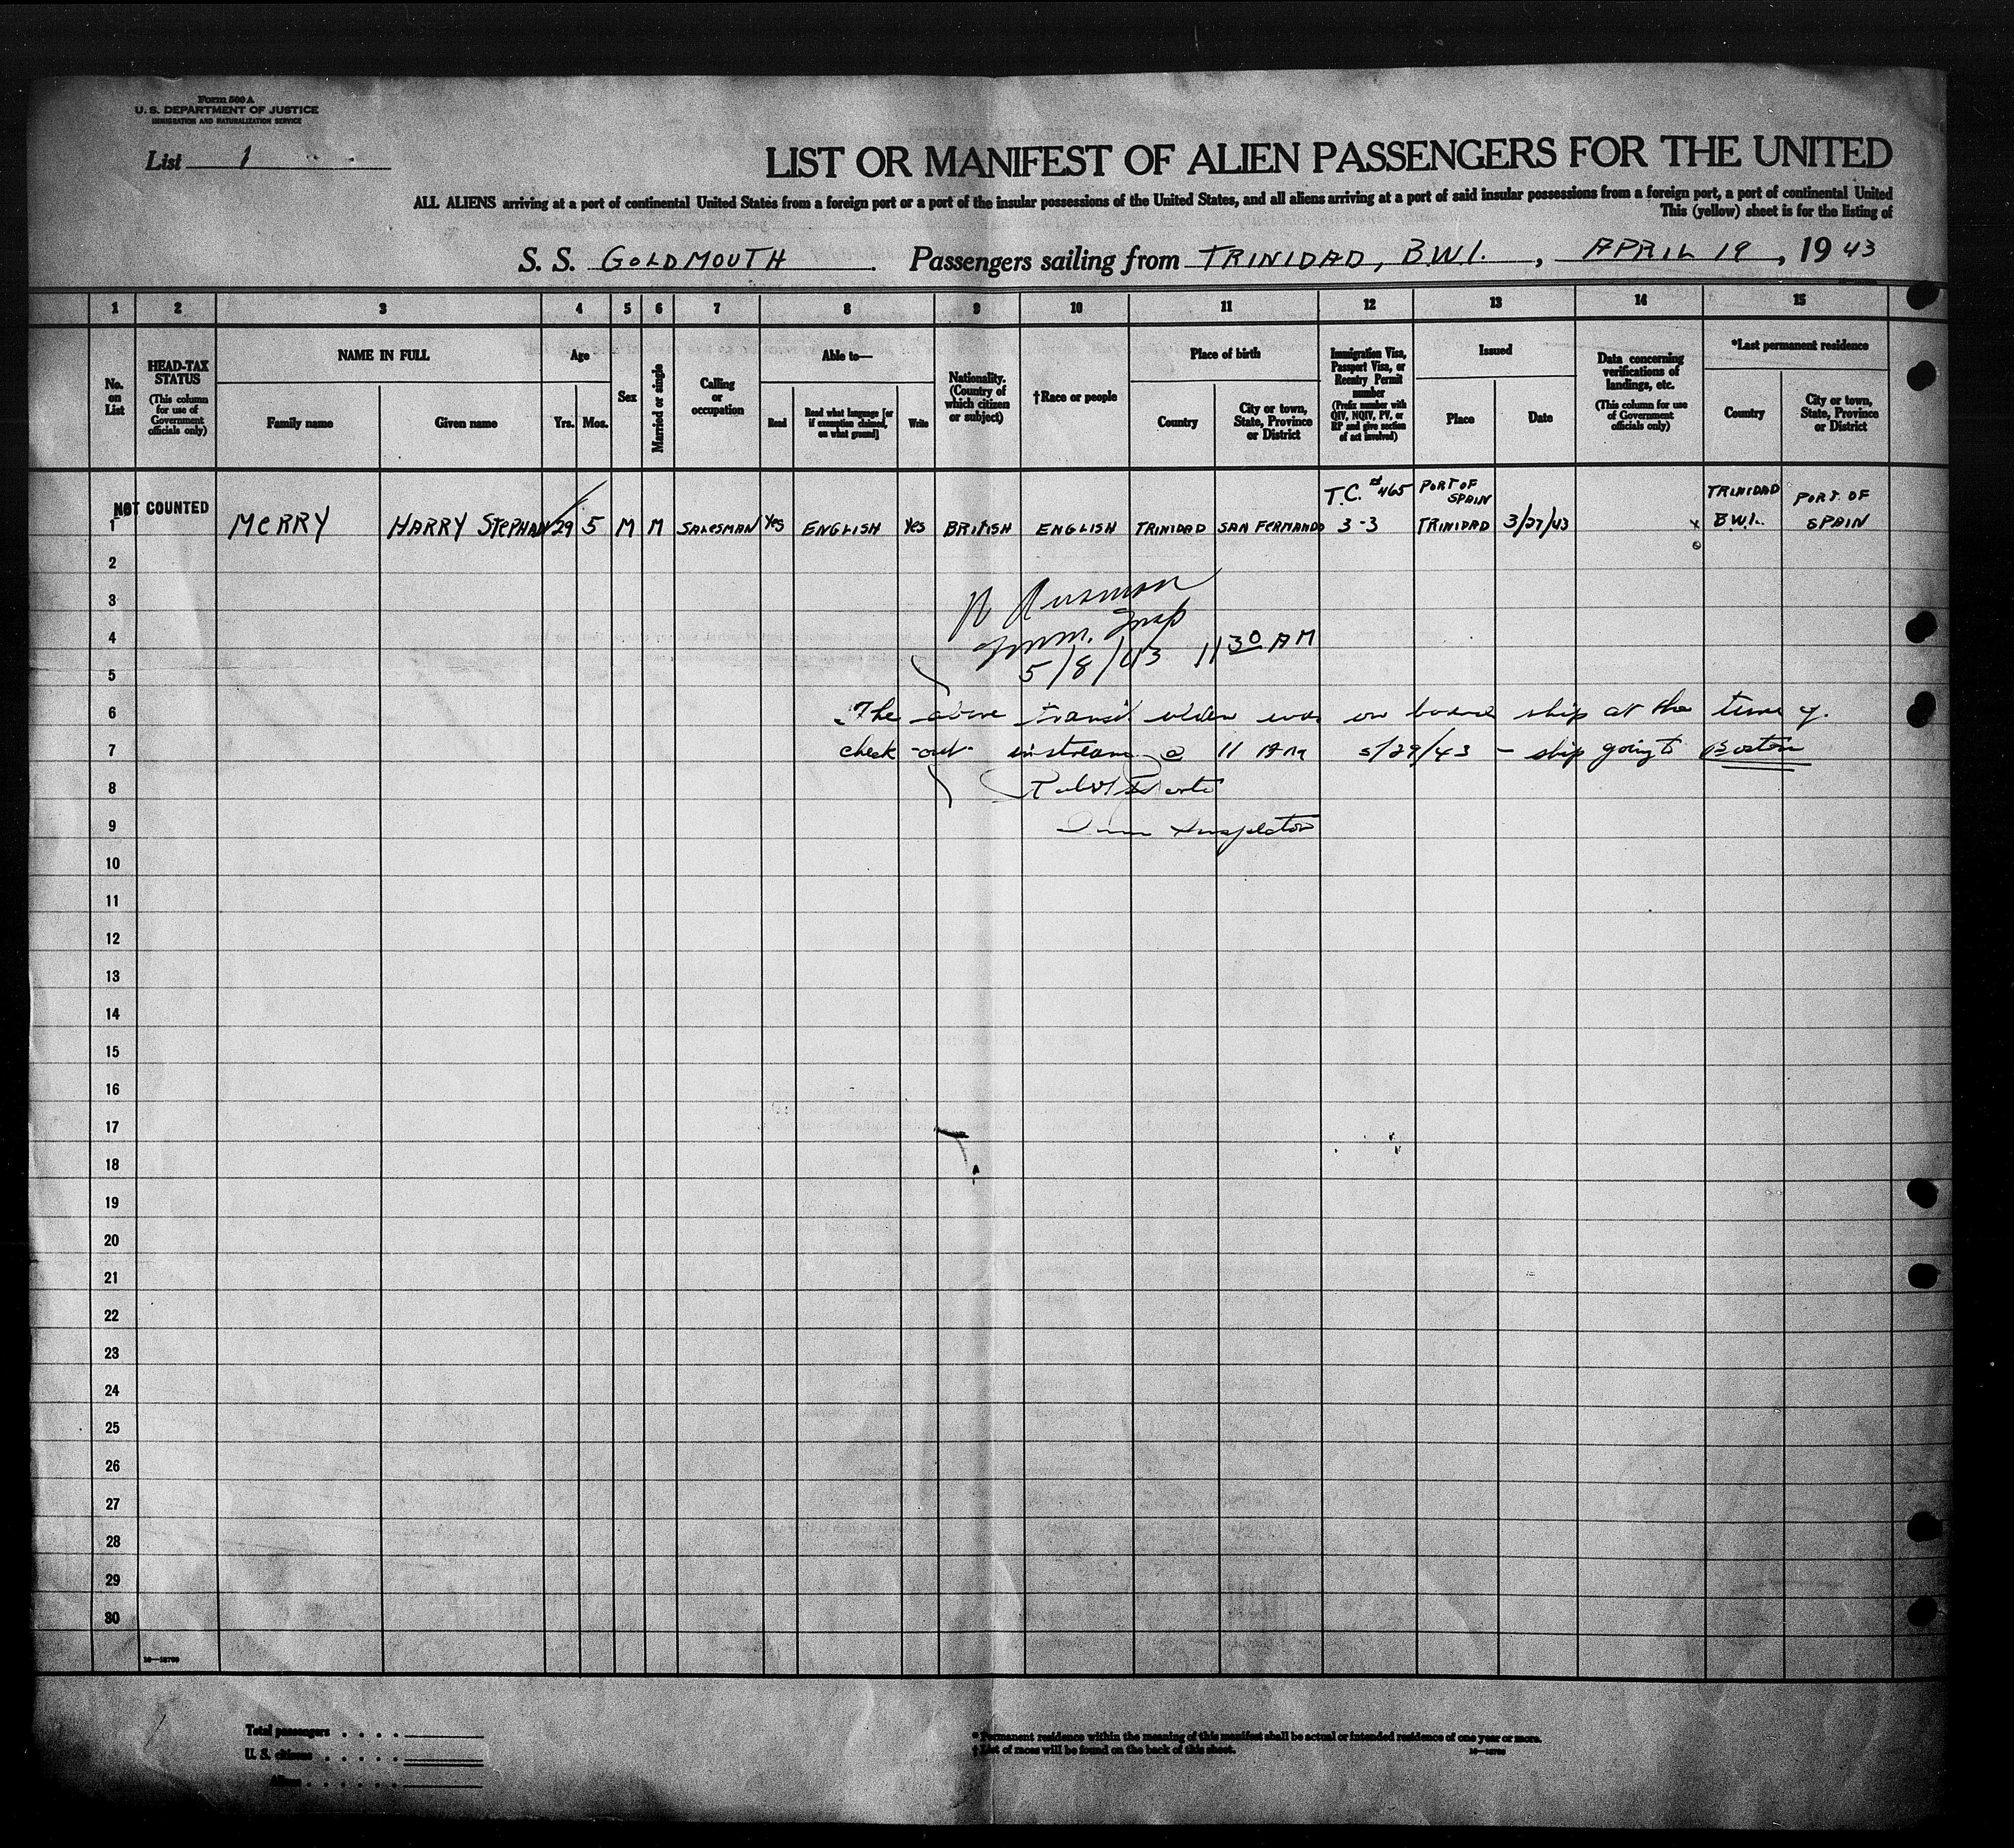 Form 500 A
U. S. DEPARTMENT OF JUSTICE
IMMIGRATION AND NATURALIZATION SERVICE
List 1
LIST OR MANIFEST OF ALIEN PASSENGERS FOR THE UNITED
ALL ALIENS arriving at a port of continental United States from a foreign port or a port of the insular possessions of the United States, and all aliens arriving at a port of said insular possessions from a foreign port, a port of continental United
This (yellow) sheet is for the listing of
S. S. GOLDMOUTH Passengers sailing from TRINIDAD, B.W.I., APRIL 19, 1943
1 2 3 4 5 6 7 8 9 10 11 12 13 14 15
No. on List
HEAD-TAX STATUS
(This column for use of Government officials only)
NAME IN FULL
Family name
Given name
Age
Yrs.
Mos.
Sex
Married or single
Calling or occupation
Able to—
Read
Read what language [or if exemption claimed, on what ground]
Write
Nationality. (Country of which citizen or subject)
†Race or people
Place of birth
Country
City or town, State, Province or District
Immigration Visa, Passport Visa, or Reentry Permit number
(Prefix number with QIV, NQIV, PV, or RP and give section of act involved)
Issued
Place
Date
Data concerning verifications of landings, etc.
(This column for use of Government officials only)
*Last permanent residence
Country
City or town, State, Province or District
NOT COUNTED
1 MERRY HARRY STEPHAN 29 5 M M SALESMAN Yes ENGLISH Yes BRITISH ENGLISH TRINIDAD SAN FERNANDO T.C. #465 3-3 PORT OF SPAIN TRINIDAD 3/27/43 x TRINIDAD B.W.I. PORT OF SPAIN
2
3
Imm. Insp
4
5/8/43 11 30 AM
5
6 The above transit alien was on board ship at the time of
7 check-out instream @ 11 AM 5/29/43 - ship going to Boston
8
9 Imm Inspector
10
11
12
13
14
15
16
17
18
19
20
21
22
23
24
25
26
27
28
29
30
Total passengers
U. S. citizens
Aliens
* Permanent residence within the meaning of this manifest shall be actual or intended residence of one year or more.
† List of races will be found on the back of this sheet.